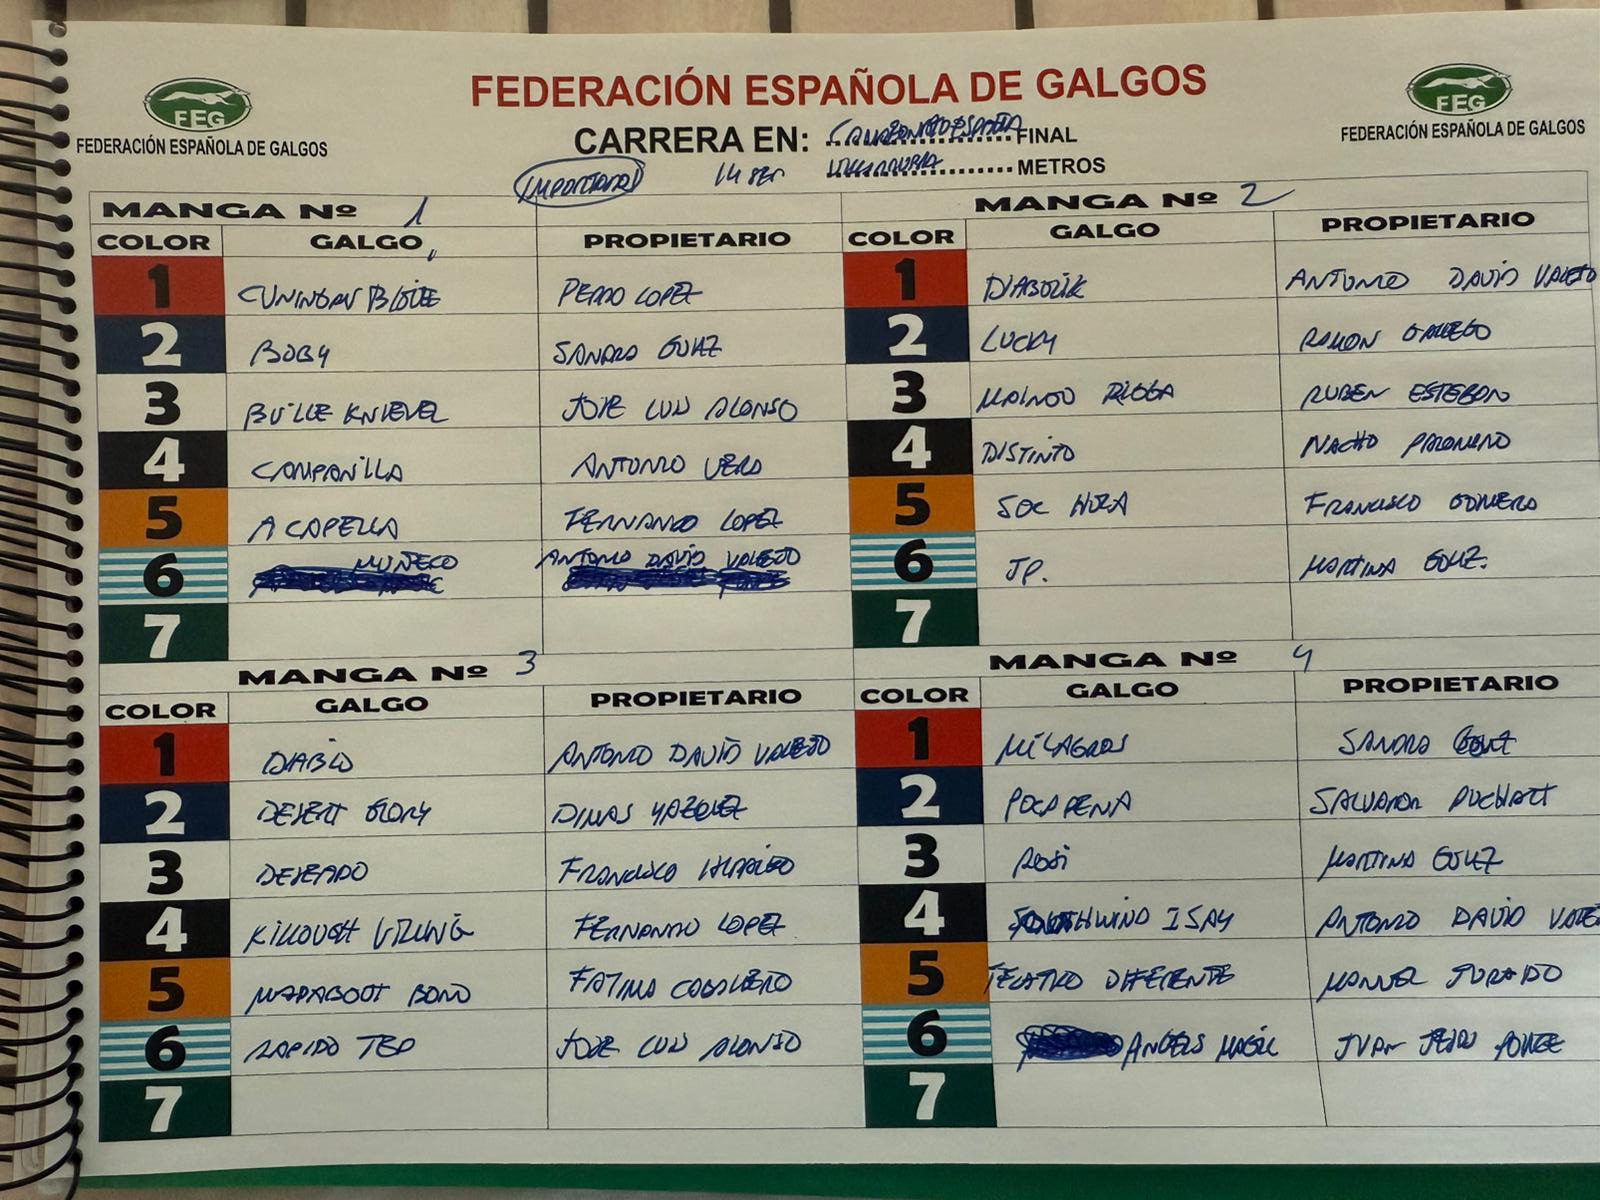 FEG
FEDERACIÓN ESPAÑOLA DE GALGOS
FEDERACIÓN ESPAÑOLA DE GALGOS
FEG
FEDERACIÓN ESPAÑOLA DE GALGOS
CARRERA EN: FINAL
14 SEP METROS
MANGA Nº 1
COLOR GALGO PROPIETARIO
1 PEDRO LOPEZ
2 BOBY SANDRA GLEZ
3 BUILLE KNIEVEL JOSE LUIS ALONSO
4 CAMPANILLA ANTONIO VERA
5 ACAPELLA FERNANDO LOPEZ
6 MUÑECO ANTONIO DAVID VALEJO
7
MANGA Nº 2
COLOR GALGO PROPIETARIO
1 DIABOLIK ANTONIO DAVID VALEJO
2 LUCKY RAMON GALLEGO
3 RUBEN ESTEBAN
4 DISTINTO NACHO PALOMINO
5 FRANCISCO
6 JP. MARTINA GLEZ.
7
MANGA Nº 3
COLOR GALGO PROPIETARIO
1 DIABLO ANTONIO DAVID VALEJO
2 DESERT GLORY DIMAS VAZQUEZ
3 DESEADO FRANCISCO
4 KILLOUGH VIKING FERNANDO LOPEZ
5 MARABOUT BOND FATIMA CABALLERO
6 RAPIDO TBO JOSE LUIS ALONSO
7
MANGA Nº 4
COLOR GALGO PROPIETARIO
1 MILAGROS SANDRA GLEZ
2 POCAPENA SALVADOR PUCHALT
3 ROSI MARTINA GLEZ
4 SOUTHWIND ISAY ANTONIO DAVID VALEJ
5 TEATRO DIFERENTE MANUEL JURADO
6 ANGELS MAGIC JUAN JESUS PONCE
7